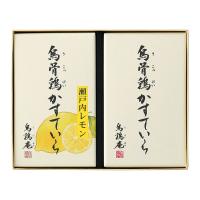 烏骨鶏
かすていら
瀬戸内レモン
烏鶏庵
烏骨鶏
かすていら
烏鶏庵